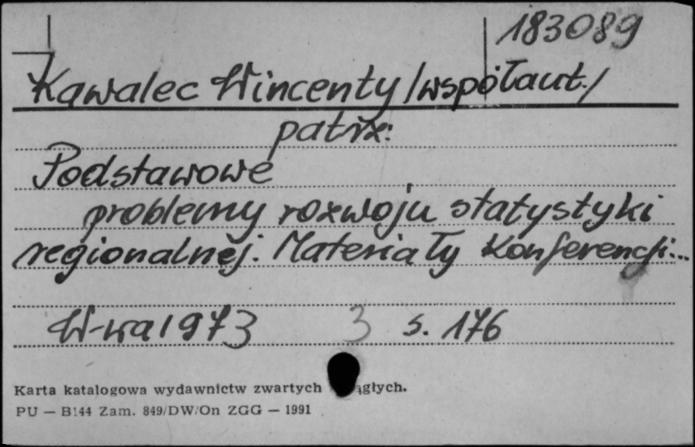 183089
Kawalec Wincenty /współaut./
patrz:
Podstawowe
problemy rozwoju statystyki
regionalnej. Materiały Konferencji...
W-wa 1973 3 s. 176
Karta katalogowa wydawnictw zwartych
PU — B144 Zam. 849/DW/On ZGG — 1991